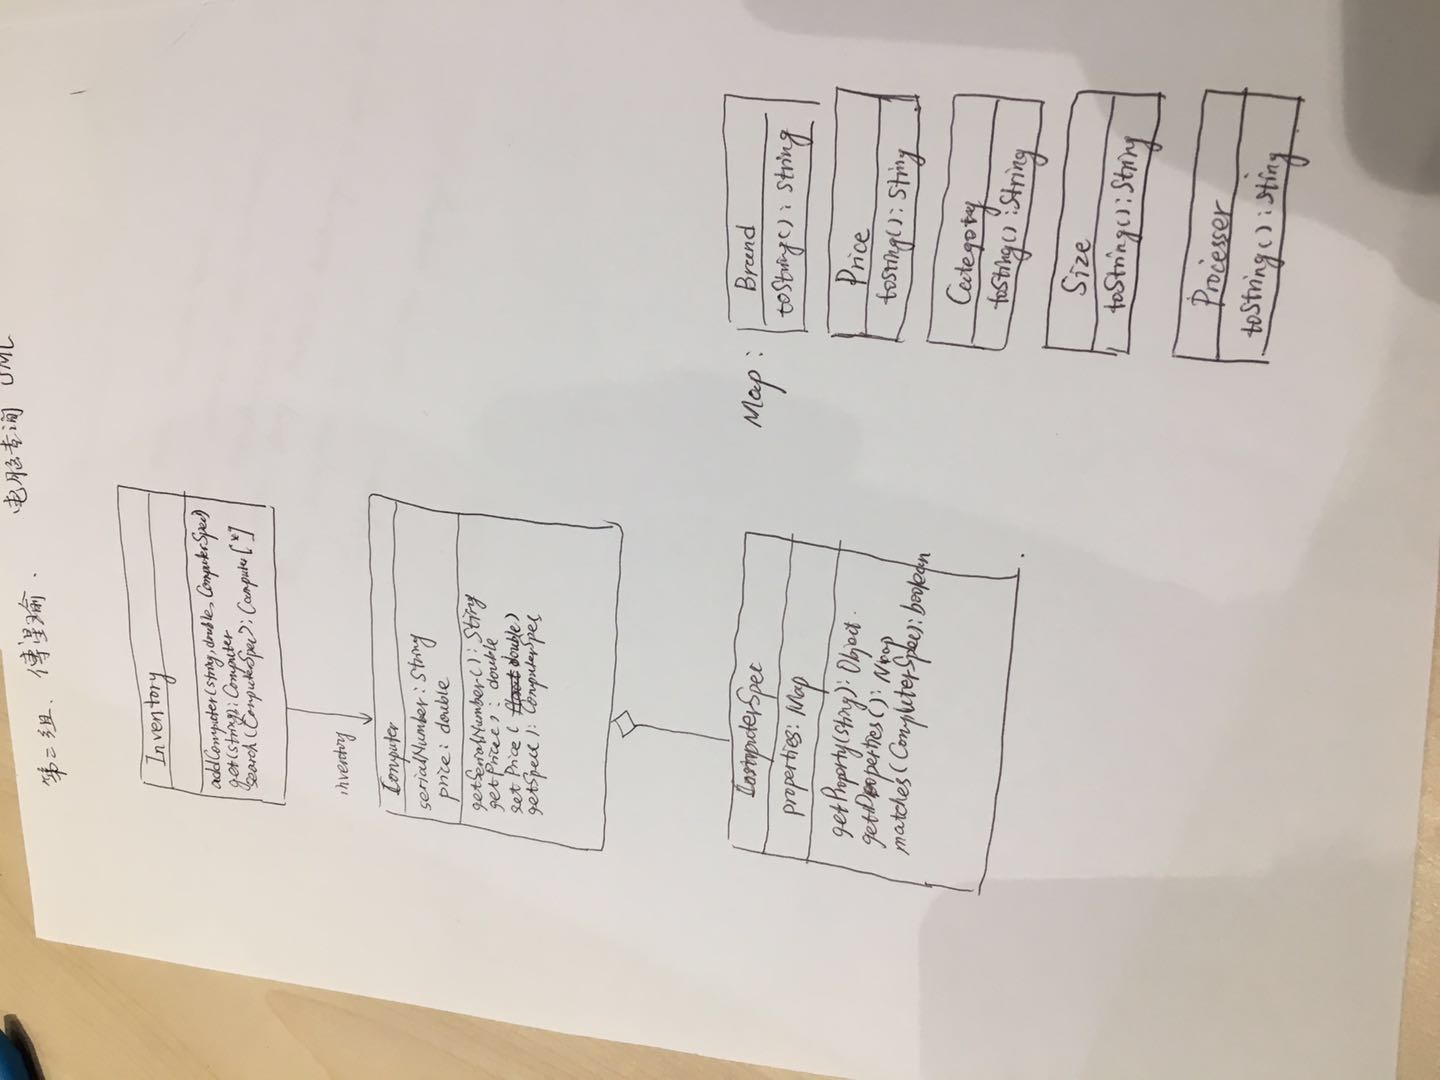 第二组、 傅 瑜. 电脑查询 UML
Inventory
addComputer(string,double,ComputerSpec)
get(string):Computer
search(ComputeSpec):Computer[*]
inventory
Computer
serialNumber:String
price:double
getSerialNumber():String
getPrice():double
setPrice(double)
getSpec():ComputerSpec
ComputerSpec
properties:Map
getProprty(String):Object.
getProperties():Map
matches(ComputerSpec):boolean
Map:
Brand
toString():String
Price
toString():String
Category
toString():String
Size
toString():String
Processer
toString():Sting